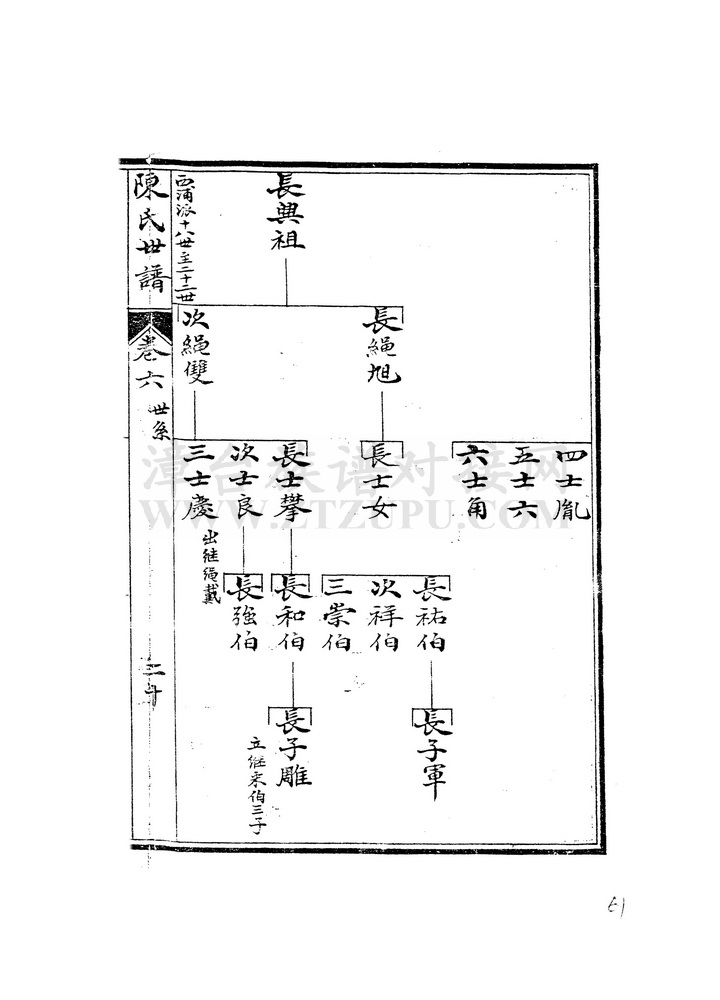 四士胤
五士六
六士角
長祐伯
次祥伯
三崇伯
長子軍
長興祖
長繩旭
長士女
次繩雙
長士攀
次士良
三士慶
出继绳戴
長和伯
長強伯
長子雕
立继宋伯三子
西浦派十八世至二十二世
陳氏世譜
卷六
世系
二十
漳台族谱对接网
WWW.ZTZUPU.COM
61